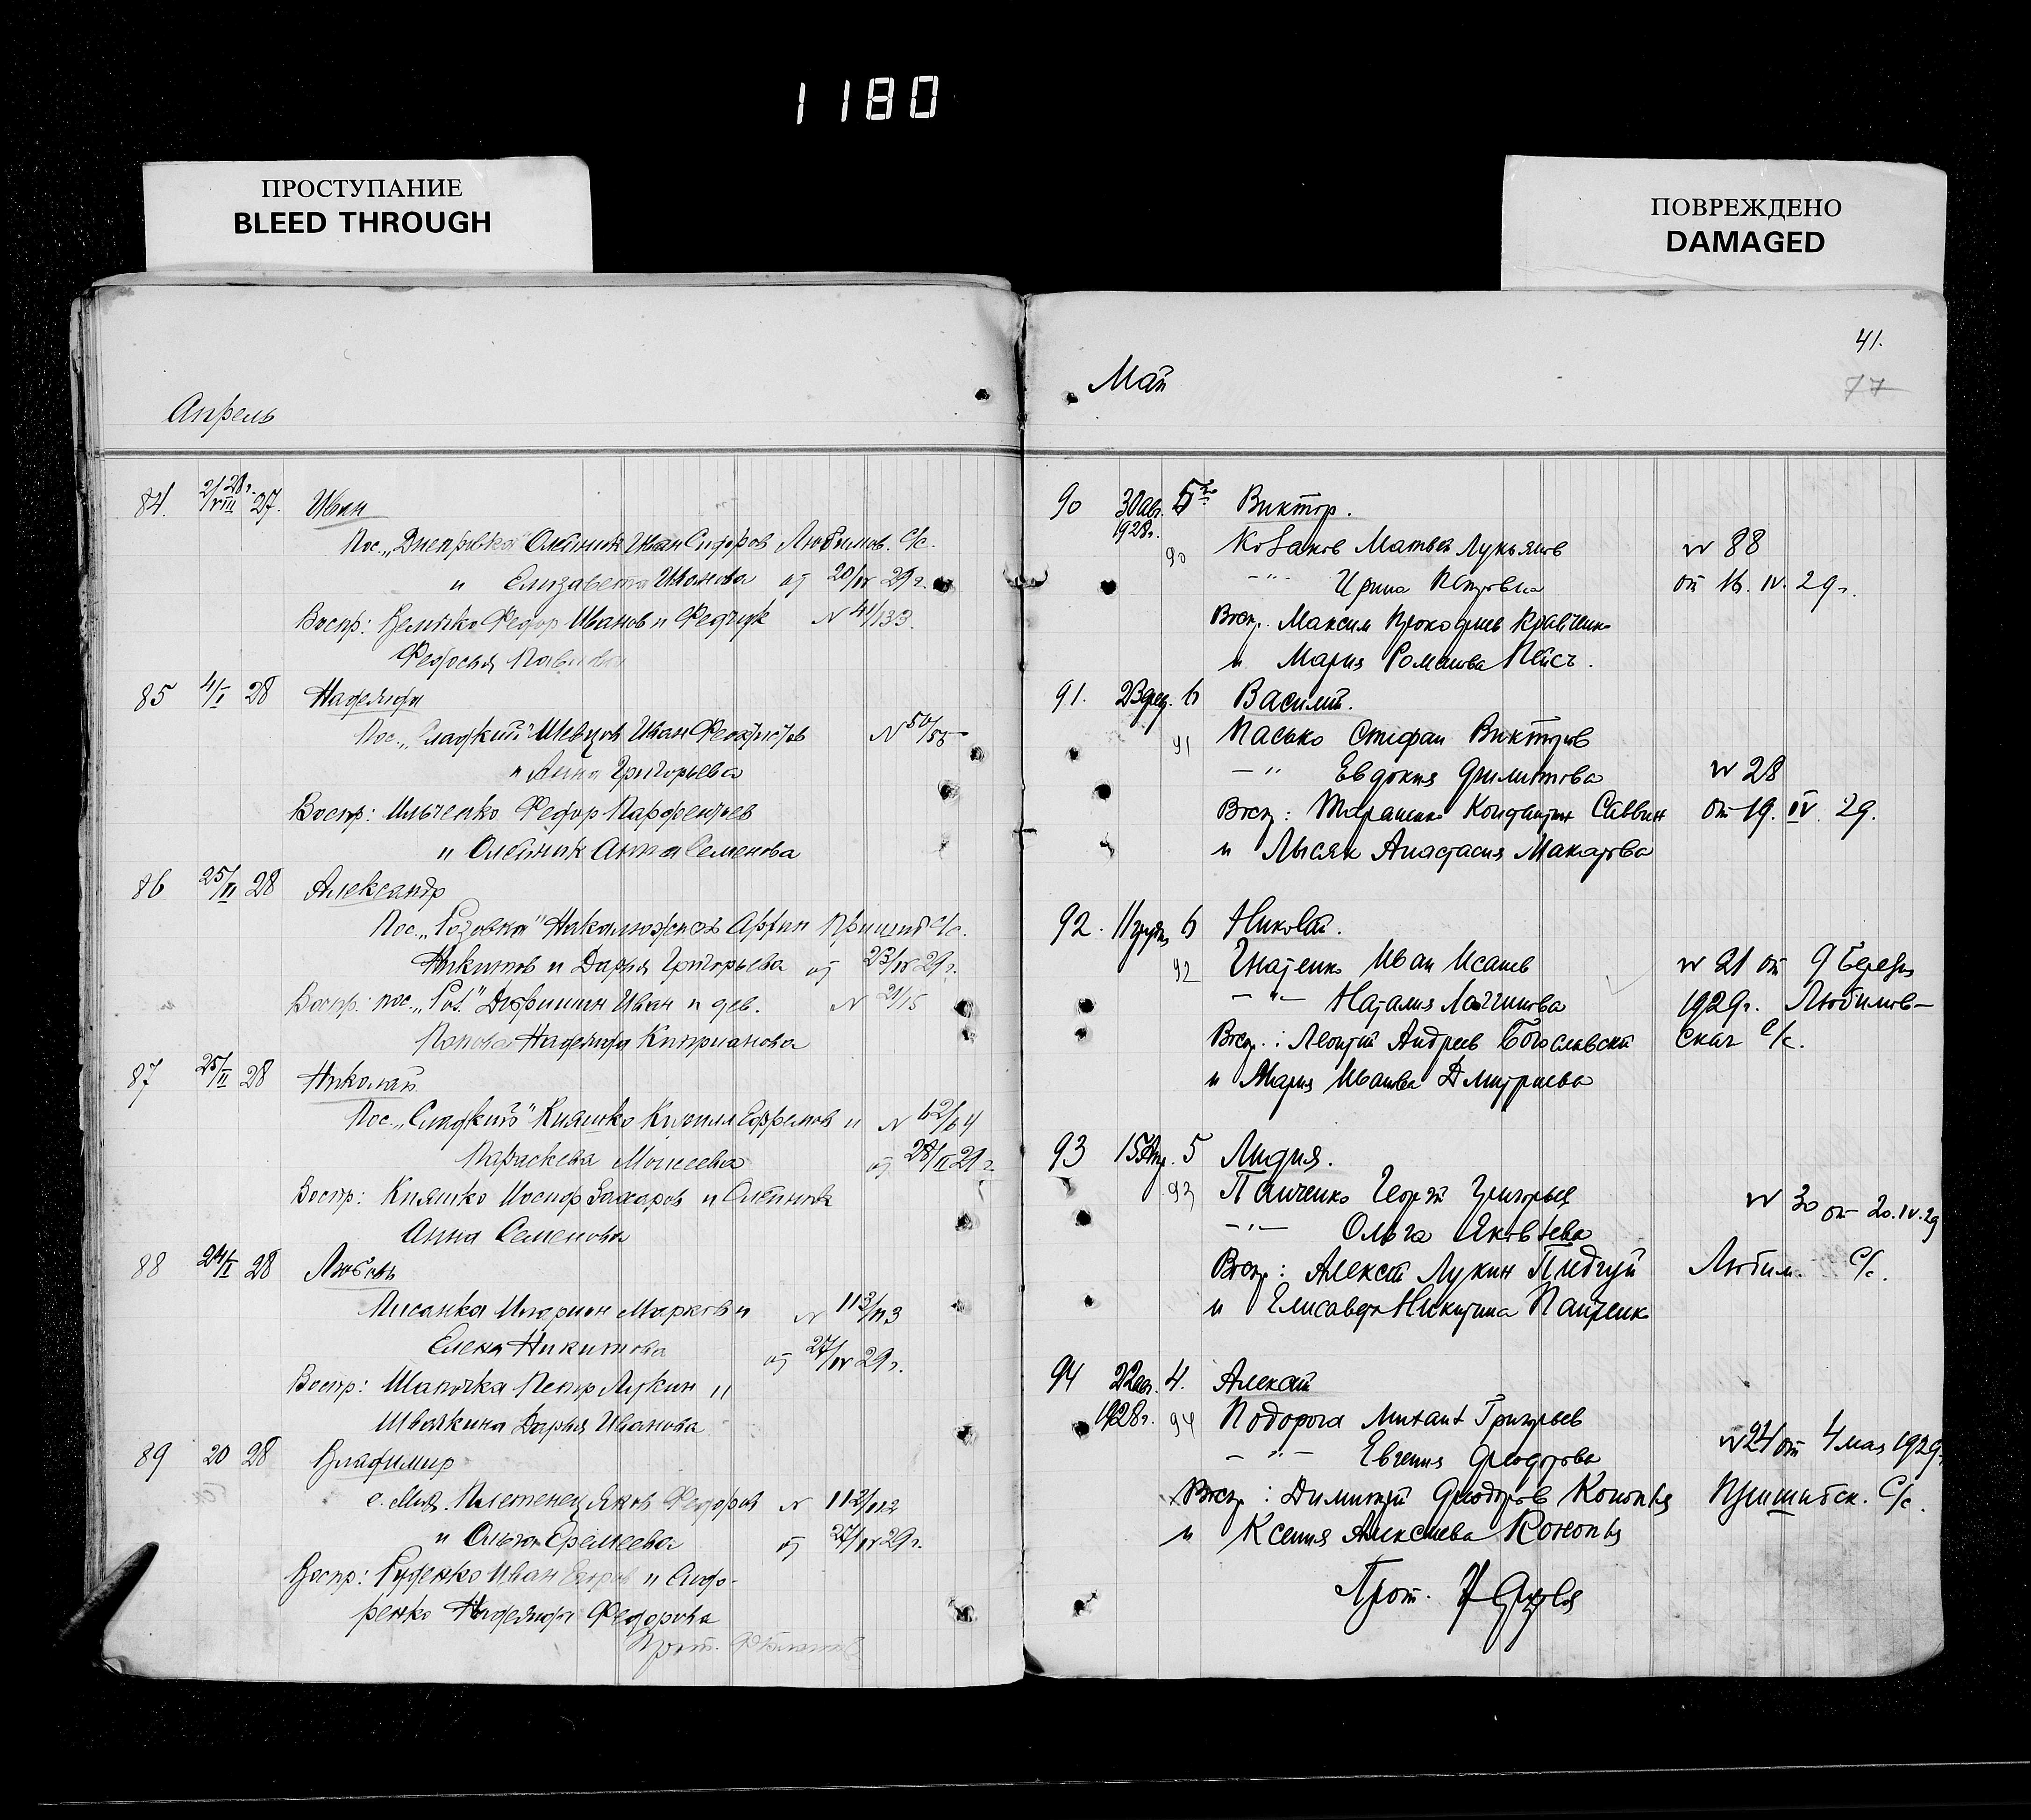 1180
ПРОСТУПАНИЕ
BLEED THROUGH
ПОВРЕЖДЕНО
DAMAGED
Апрель
84. 2/VIII 28г. 27. Иван
Пос. „Днепровка" Олейник Иван Сидоров Любимов. С/с.
и Елизавета Иванова от 20/IV 29г.
Воспр: Федор Иванов и Федчук N 41/133
Феодосия Павлова
85 4/I 28 Надежда
Пос. „Сладкий" Шевцов Иван Феоктистов N 50/55
и Анна Григорьева
Воспр: Ильченко Федор Парфентьев
и Олейник Анна Семенова
86 25/II 28 Александр
Пос. „Розовка" Пришиб С/с.
Никитов и Дарья Григорьева от 23/IV 29г.
Воспр: пос. „Роз." Иван и дев. N 21/15
Попова Надежда Киприанова
87 25/II 28 Николай
Пос. „Сладкий" Княжко Кирилл Ефремов и N 62/64
Параскева Моисеева от 28/II 29г.
Воспр: Княжко Иосиф Захаров и Олейник
Анна Семенова
88 24/I 28 Любовь
Писанка Иларион Марков и N 113/113
Елена Никитова от 27/IV 29г.
Воспр: Шапочка Петр Лукин и
Швачкина Дарья Иванова
89 20 28 Владимир
с. Мих. Плетенец Яков Федоров N 112/112
и Ольга Еремеева от 27/IV 29г.
Воспр: Руденко Иван Егоров и Сидо-
ренко Надежда Федорова
Прот.
41.
77
Май
90 30 ав. 5го Виктор.
1928г. 90 Козаков Матвей Лукьянов № 88
-"- Ирина Петровна от 16. IV. 29г.
Воспр. Максим Прокофиев Кравченко
и Мария Романова Пейсч.
91. 23 6 Василий.
91 Пасько Стефан Викторов
-"- Евдокия Филиппова № 28
Воспр: Тараненко Кондратий Саввин от 19. IV. 29.
и Лысяк Анастасия Макарова
92. 11 грудня 6 Николай.
92 Гнатенко Иван Исаев № 21 от 9 березня
-"- Наталия Логгинова 1929г. Любимов-
Воспр.: Леонтий Андреев Богославский ская С/с.
и Мария Иванова Дмитриева
93 15 5 Лидия.
93 Панченко Георгий Григорьев № 30 от 20.IV.29
-"- Ольга Яковлева
Воспр: Алексей Лукин Пидгуй Любим. С/с.
и Елисавета Никитина Панченко
94 22 ав. 4. Алексей
1928г. 94 Подорога Михаил Григорьев
-"- Евгения Феодорова № 24 от 4 мая 1929г.
Воспр: Димитрий Феодоров Конопля Пришибск. С/с.
и Ксения Алексиева Конопля
Прот.